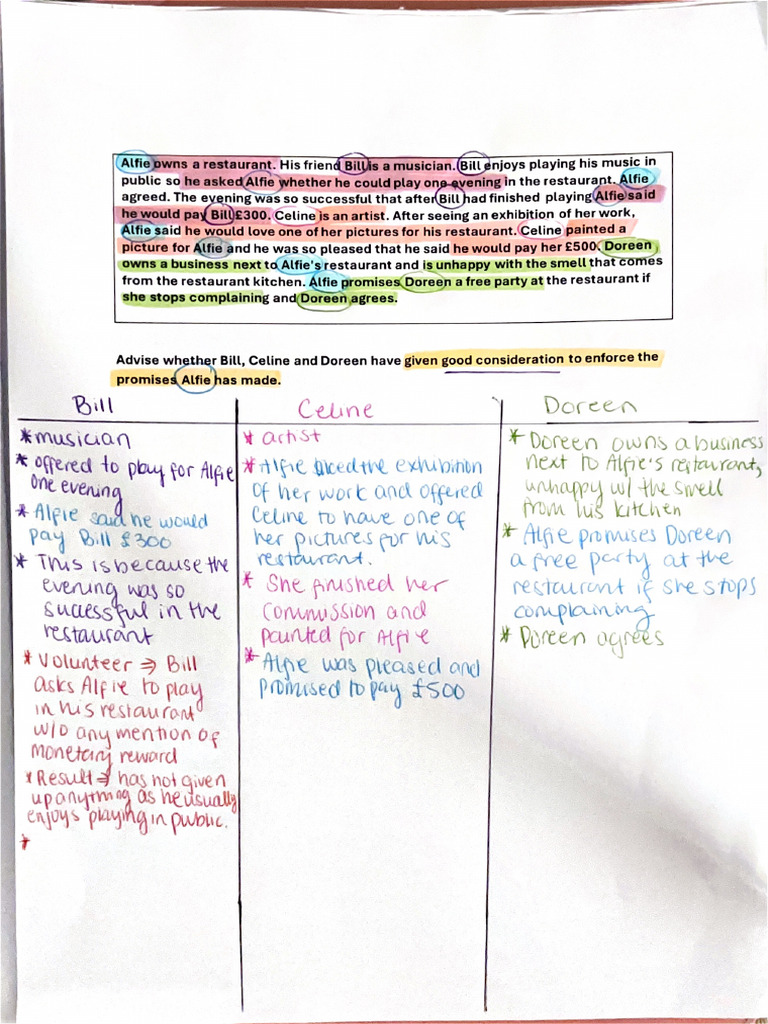 Alfie owns a restaurant. His friend Bill is a musician. Bill enjoys playing his music in
public so he asked Alfie whether he could play one evening in the restaurant. Alfie
agreed. The evening was so successful that after Bill had finished playing Alfie said
he would pay Bill £300. Celine is an artist. After seeing an exhibition of her work,
Alfie said he would love one of her pictures for his restaurant. Celine painted a
picture for Alfie and he was so pleased that he said he would pay her £500. Doreen
owns a business next to Alfie's restaurant and is unhappy with the smell that comes
from the restaurant kitchen. Alfie promises Doreen a free party at the restaurant if
she stops complaining and Doreen agrees.
Advise whether Bill, Celine and Doreen have given good consideration to enforce the
promises Alfie has made.
Bill
* musician
* offered to play for Alfie
one evening
* Alfie said he would
pay Bill £300
* This is because the
evening was so
successful in the
restaurant
* Volunteer ⇒ Bill
asks Alfie to play
in his restaurant
w/o any mention of
monetary reward
* Result ⇒ has not given
up anything as he usually
enjoys playing in public.
*
Celine
* artist
* Alfie liked the exhibition
of her work and offered
Celine to have one of
her pictures for his
restaurant.
* She finished her
commission and
painted for Alfie
* Alfie was pleased and
promised to pay £500
Doreen
* Doreen owns a business
next to Alfie's restaurant,
unhappy w/ the smell
from his kitchen
* Alfie promises Doreen
a free party at the
restaurant if she stops
complaining
* Doreen agrees